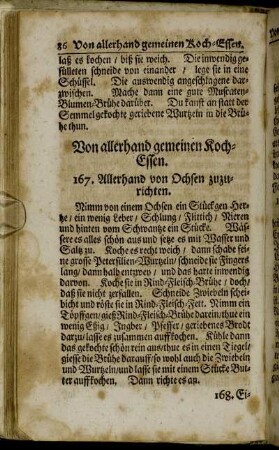 86 Von allerhand gemeinen Koch-Essen.
laß es kochen / biß sie weich. Die inwendig ge-
fülleten schneide von einander / lege sie in eine
Schüssel. Die auswendig angeschlagene dar-
zwischen. Mache dann eine gute Muscaten-
Blumen-Brühe darüber. Du kanst an statt der
Semmel gekochte geriebene Wurtzeln in die Brü-
he thun.
Von allerhand gemeinen Koch-
Essen.
167. Allerhand von Ochsen zuzu-
richten.
Nimm von einem Ochsen ein Stückgen Her-
tze / ein wenig Leber / Schlung / Flittich / Nieren
und hinten vom Schwantze ein Stücke. Wäs-
sere es alles schön aus und setze es mit Wasser und
Saltz zu. Koche es recht weich / dann schabe fei-
ne grosse Petersilien-Wurtzeln / schneide sie Fingers
lang / dann halb entzwey / und das harte inwendig
darvon. Koche sie in Rind-Fleisch-Brühe / doch /
daß sie nicht zerfallen. Schneide Zwiebeln schei-
bicht und röste sie in Rind-Fleisch-Fett. Nimm ein
Töpffgen / gieß Rind-Fleisch-Brühe darein / thue ein
wenig Eßig / Ingber / Pfeffer / geriebenes Brodt
darzu / lasse es zusammen auffkochen. Kühle dann
das gekochte schön rein aus / thue es in einen Tiegel /
giesse die Brühe darauff / so wohl auch die Zwiebeln
und Wurtzeln / und lasse sie mit einem Stücke But-
ter auffkochen. Dann richte es an.
168. Ei-